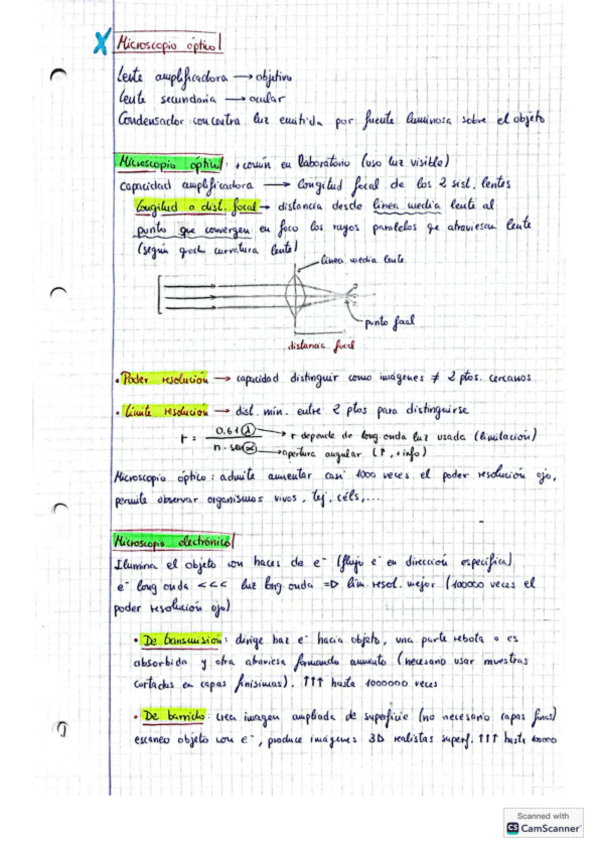 X Microscopio óptico
Lente amplificadora → objetivo
Lente secundaria → ocular
Condensador concentra luz emitida por fuente luminosa sobre el objeto
Microscopio óptico: + común en laboratorio (uso luz visible)
capacidad amplificadora → longitud focal de los 2 sist. lentes
Longitud o dist. focal → distancia desde línea media lente al
punto que convergen en foco los rayos paralelos qe atraviesan lente
(según grado curvatura lente)
línea media lente
punto focal
distancia focal
• Poder resolución → capacidad distinguir como imágenes ≠ 2 ptos. cercanos
• Límite resolución → dist. min. entre 2 ptos para distinguirse
r = 0.61 λ / n · sen α
→ r depende de long. onda luz usada (limitación)
→ apertura angular (↑, + info)
Microscopio óptico: admite aumentar casi 1000 veces el poder resolución ojo,
permite observar organismos vivos, tej, céls,...
Microscopio electrónico
Ilumina el objeto con haces de e⁻ (flujo e⁻ en dirección específica)
e⁻ long onda <<< luz long. onda => lím. resol. mejor (100000 veces el
poder resolución ojo)
• De transmisión: dirige haz e⁻ hacia objeto, una parte rebota o es
absorbida y otra atraviesa formando aumento (necesario usar muestras
cortadas en capas finísimas). ↑↑↑ hasta 1000000 veces
• De barrido: crea imagen ampliada de superficie (no necesario capas finas)
escaneo objeto con e⁻, produce imágenes 3D realistas superf. ↑↑↑ hasta
Scanned with
CS CamScanner